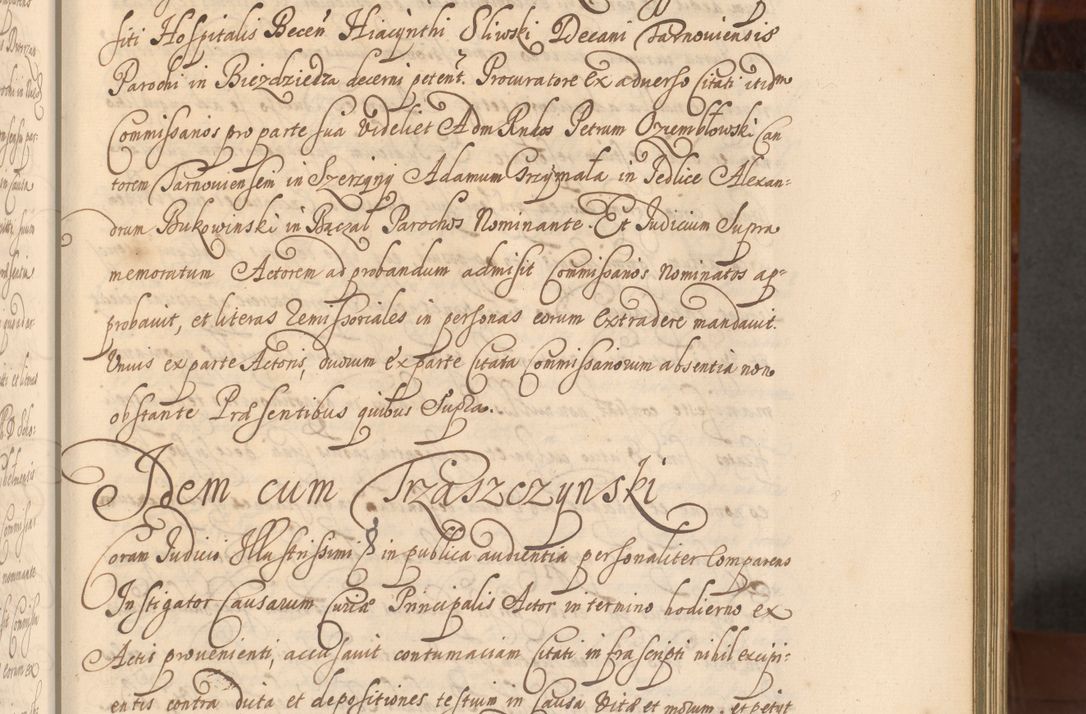 siti Hospitalis Becen̄ Hiacynthi Sliwski Decani Tarnoviensis
Parochi in Bieździedza decerni peten̄t. Procuratore ex adverso Citati itidm
Commissarios pro parte sua videlicet Adm Rndos Petrum Oziembłowski Can
torem Tarnoviensem in Szerzyny Adamum Grzymała in Jedlice Alexan=
drum Bukowinski in Bączal Parochos Nominante. Et Judicium Supra
memoratum Actorem ad probandum admisit Commissarios Nominatos ap=
probavit, et literas Remissoriales in personas eorum Extradere mandavit.
Unius ex parte Actoris, duorum ex parte Citata Commissariorum absentia non
obstante Præsentibus quibus Supra.
Idem cum Trzaszczynski
Coram Judicio Illustrissimi in publica audientia personaliter Comparens
Instigator Causarum Curiæ Principalis Actor in termino hodierno ex
Actis provenienti, accusavit contumaciam Citati infrascripti nihil excipi=
entis contra dicta et depositiones testium in Causa Vitæ et morum, et petyt